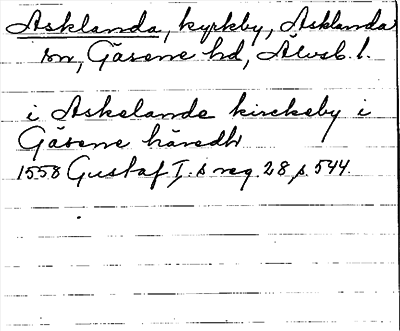 Asklanda, kyrkby, Asklanda
sn, Gäsene hd, Älvsb. l.
i Askelande kirckeby i
Gäsene häredh
1558 Gustaf I:s reg 28, s. 544.